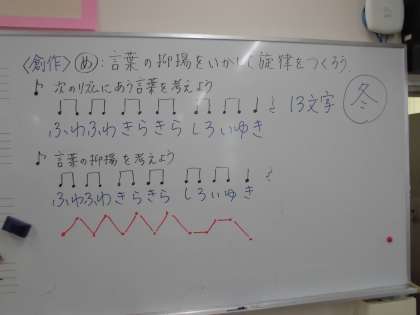 〈創作〉 め:言葉の抑揚をいかして旋律をつくろう
♪ 次のリズムにあう言葉を考えよう
13文字 冬
ふわふわ きらきら しろいゆき
♪ 言葉の抑揚を考えよう
ふわふわ きらきら しろいゆき